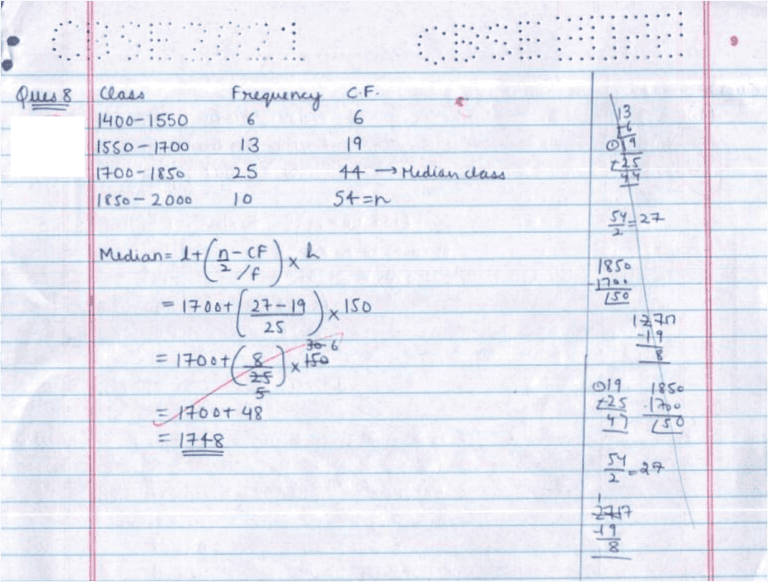 CBSE 2021 CBSE
9
Ques 8 Class Frequency C.F.
1400-1550 6 6
1550-1700 13 19
1700-1850 25 44 → Median class
1850-2000 10 54=n
Median = l+(n/2 - CF / f) × h
= 1700+(27-19 / 25) × 150
= 1700+(8 / 25 5) × 150 30 6
= 1700+ 48
= 1748
13
+6
19
+25
44
54/2 = 27
1850
-1700
150
-19
8
19
+25
1850
-1700
150
54/2 = 27
-19
8